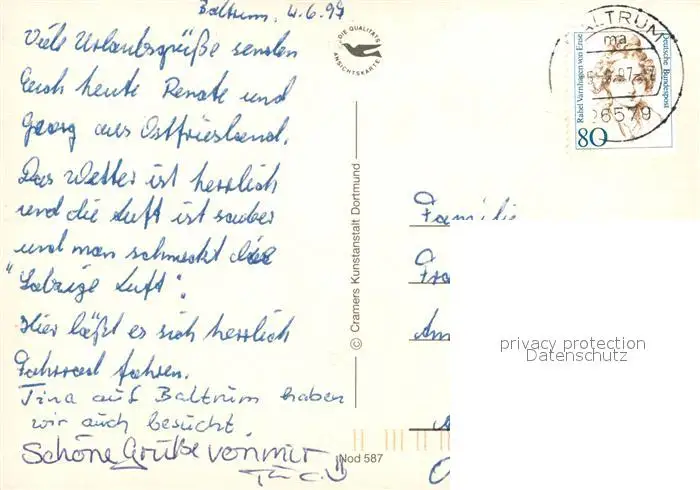 Baltrum, 4.6.97
Viele Urlaubsgrüße senden
Euch heute Renate und
Georg aus Ostfriesland.
Das Wetter ist herrlich
und die Luft ist sauber
und man schmeckt die
"Salzige Luft".
Hier läßt es sich herrlich
Fahrrad fahren.
Tina auf Baltrum haben
wir auch besucht.
Schöne Grüße von mir
Tina
DIE QUALITÄTS
ANSICHTSKARTE
© Cramers Kunstanstalt Dortmund
Nod 587
BALTRUM
ma
26579
Rahel Varnhagen von Ense
Deutsche Bundespost
80
Familie
Am
privacy protection
Datenschutz